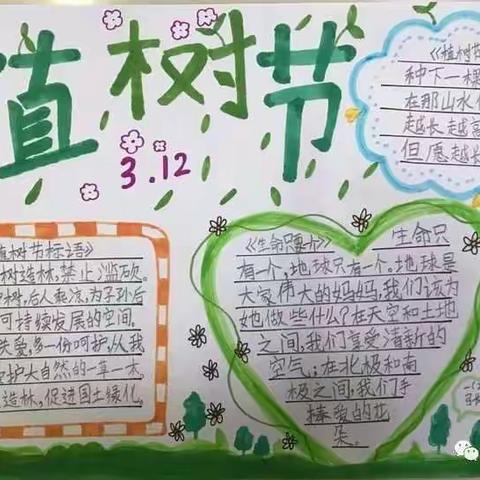 植树节
3.12
《植树节
种下一棵
在那山水
越长越
但愿越长
植树节标语》
树造林,禁止滥砍。
树,后人乘凉,为子孙后
可持续发展的空间。
关爱,多一份呵护,从我
护大自然的一草一木。
造林,促进国土绿化。
《生命只
生命只
有一个,地球只有一个。地球是
大家伟大的妈妈,我们该为
她做些什么?在天空和土地
之间,我们享受清新的
空气;在北极和南
极之间,我们手
捧爱的花
朵。